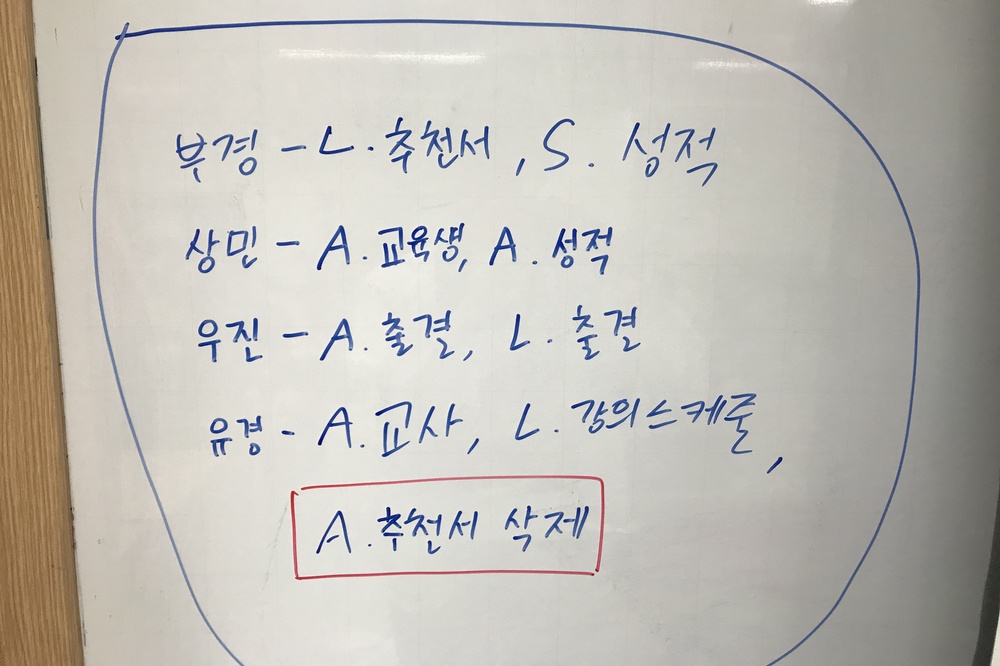 부경 - L. 추천서, S. 성적
상민 - A. 교육생, A. 성적
우진 - A. 출결, L. 출결
유경 - A. 교사, L. 강의스케줄,
A. 추천서 삭제